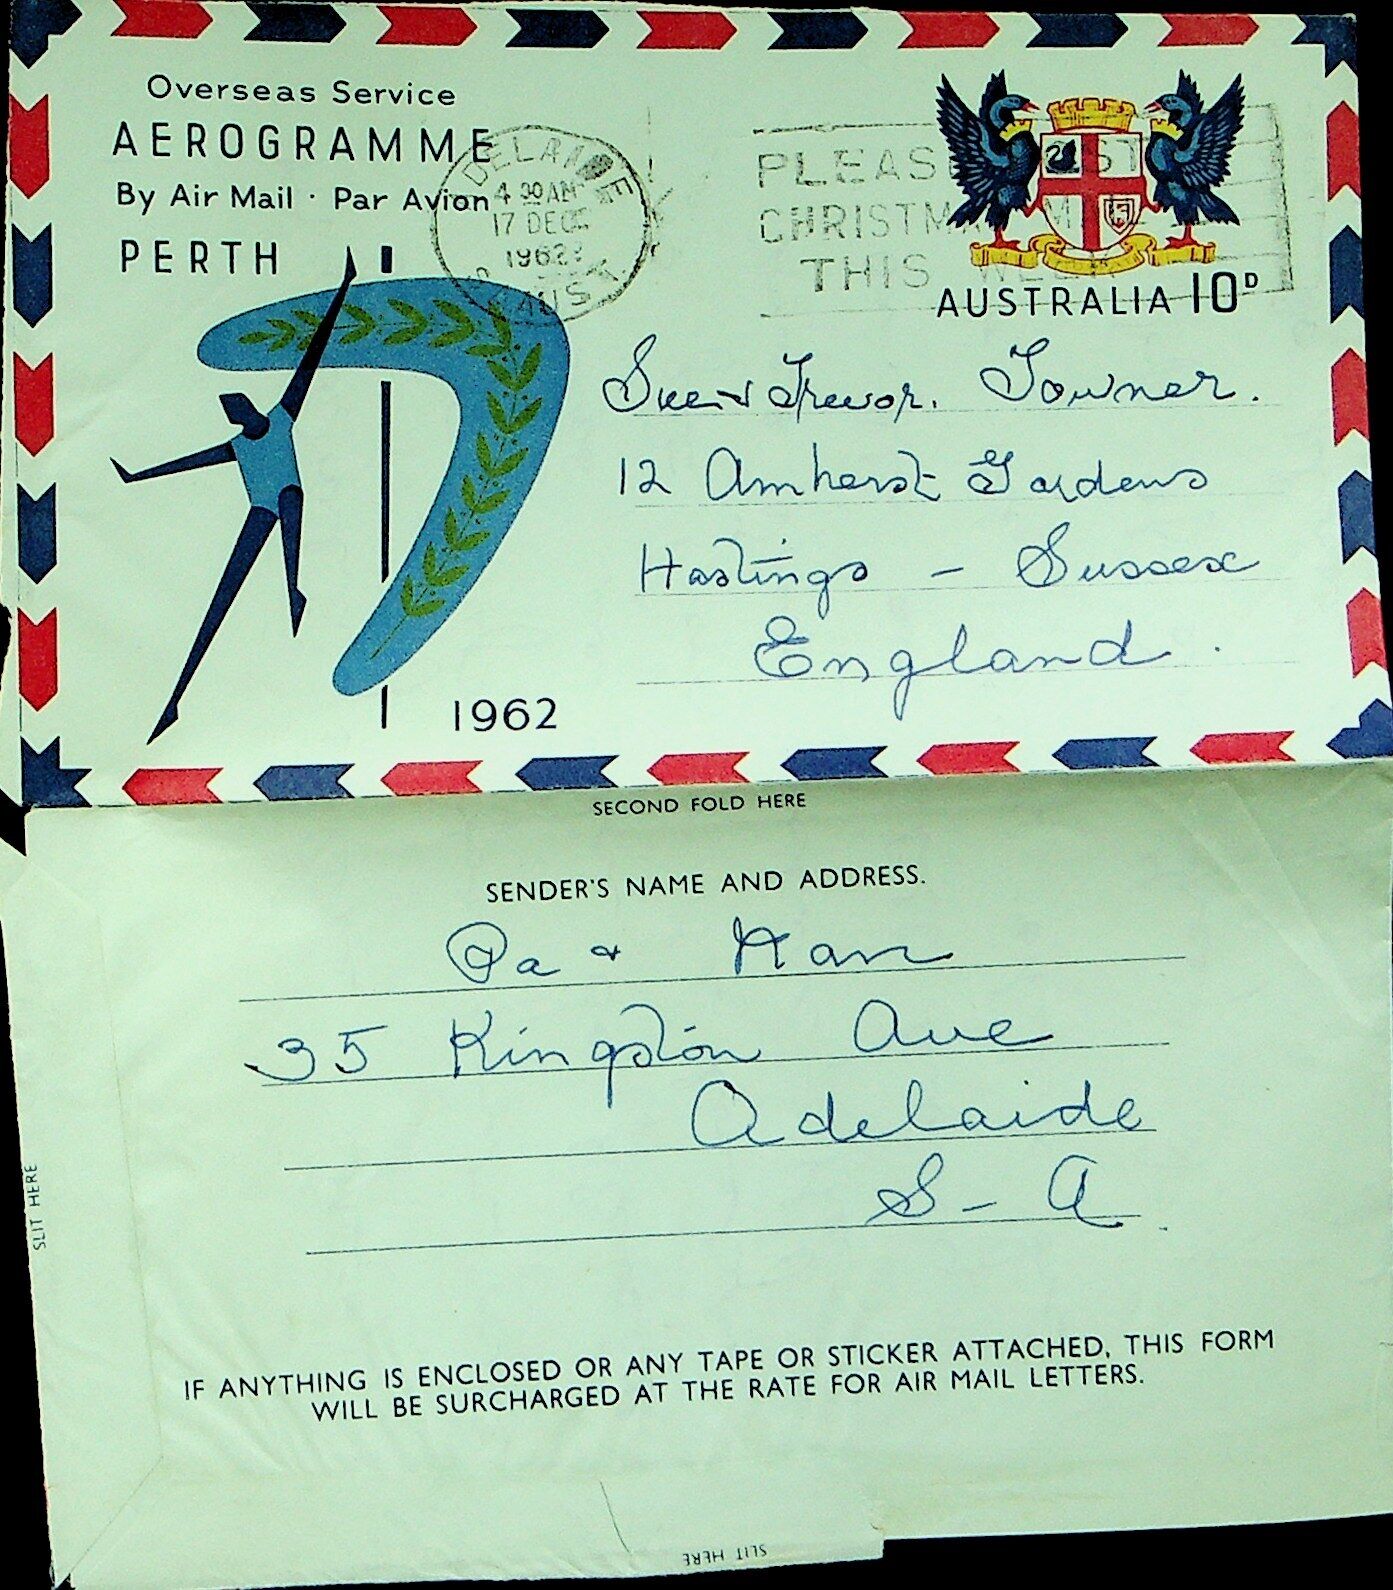 Overseas Service
AEROGRAMME
By Air Mail · Par Avion
PERTH
ADELAIDE
4 30 AM
17 DEC
1962
S. AUST
PLEASE POST
CHRISTMAS MAIL
THIS WEEK
AUSTRALIA 10D
Sue & Trevor. Towner.
12 Amherst Gardens
Hastings - Sussex
England.
1962
SECOND FOLD HERE
SENDER'S NAME AND ADDRESS.
Pa & Nan
35 Kingston Ave
Adelaide
S - A.
SLIT HERE
IF ANYTHING IS ENCLOSED OR ANY TAPE OR STICKER ATTACHED, THIS FORM
WILL BE SURCHARGED AT THE RATE FOR AIR MAIL LETTERS.
SLIT HERE